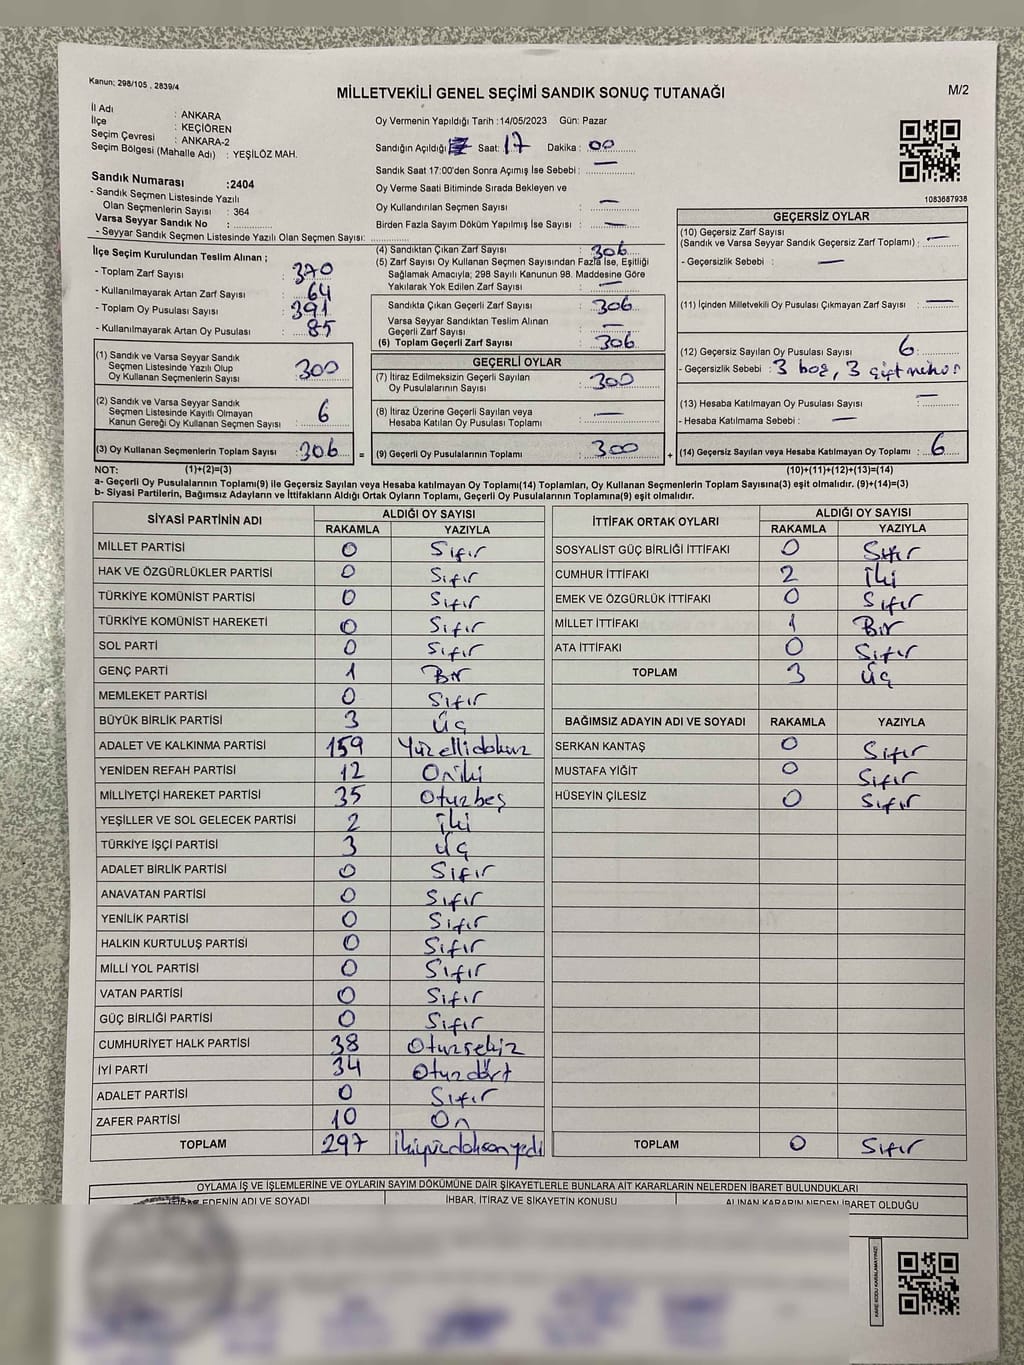 Kanun; 298/105 , 2839/4
MİLLETVEKİLİ GENEL SEÇİMİ SANDIK SONUÇ TUTANAĞI
M/2
İl Adı : ANKARA
İlçe : KEÇİÖREN
Seçim Çevresi : ANKARA-2
Seçim Bölgesi (Mahalle Adı) : YEŞİLÖZ MAH.
Sandık Numarası :2404
- Sandık Seçmen Listesinde Yazılı
Olan Seçmenlerin Sayısı : 364
Varsa Seyyar Sandık No :
- Seyyar Sandık Seçmen Listesinde Yazılı Olan Seçmen Sayısı:
Oy Vermenin Yapıldığı Tarih :14/05/2023 Gün: Pazar
Sandığın Açıldığı Saat: 17 Dakika : 00
Sandık Saat 17:00'den Sonra Açımış İse Sebebi : —
Oy Verme Saati Bitiminde Sırada Bekleyen ve
Oy Kullandırılan Seçmen Sayısı : —
Birden Fazla Sayım Döküm Yapılmış İse Sayısı : —
1083687938
İlçe Seçim Kurulundan Teslim Alınan ;
- Toplam Zarf Sayısı : 370
- Kullanılmayarak Artan Zarf Sayısı : 64
- Toplam Oy Pusulası Sayısı : 391
- Kullanılmayarak Artan Oy Pusulası : 85
(1) Sandık ve Varsa Seyyar Sandık
Seçmen Listesinde Yazılı Olup
Oy Kullanan Seçmenlerin Sayısı : 300
(2) Sandık ve Varsa Seyyar Sandık
Seçmen Listesinde Kayıtlı Olmayan
Kanun Gereği Oy Kullanan Seçmen Sayısı : 6
(3) Oy Kullanan Seçmenlerin Toplam Sayısı : 306 =
(4) Sandıktan Çıkan Zarf Sayısı : 306
(5) Zarf Sayısı Oy Kullanan Seçmen Sayısından Fazla İse, Eşitliği
Sağlamak Amacıyla; 298 Sayılı Kanunun 98. Maddesine Göre
Yakılarak Yok Edilen Zarf Sayısı : —
Sandıkta Çıkan Geçerli Zarf Sayısı : 306
Varsa Seyyar Sandıktan Teslim Alınan
Geçerli Zarf Sayısı : —
(6) Toplam Geçerli Zarf Sayısı : 306
GEÇERLİ OYLAR
(7) İtiraz Edilmeksizin Geçerli Sayılan
Oy Pusulalarının Sayısı : 300
(8) İtiraz Üzerine Geçerli Sayılan veya
Hesaba Katılan Oy Pusulası Toplamı : —
(9) Geçerli Oy Pusulalarının Toplamı : 300 +
GEÇERSİZ OYLAR
(10) Geçersiz Zarf Sayısı
(Sandık ve Varsa Seyyar Sandık Geçersiz Zarf Toplamı) : —
- Geçersizlik Sebebi : —
(11) İçinden Milletvekili Oy Pusulası Çıkmayan Zarf Sayısı : —
(12) Geçersiz Sayılan Oy Pusulası Sayısı : 6
- Geçersizlik Sebebi : 3 boş, 3 çift mühür
(13) Hesaba Katılmayan Oy Pusulası Sayısı : —
- Hesaba Katılmama Sebebi : —
(14) Geçersiz Sayılan veya Hesaba Katılmayan Oy Toplamı : 6
NOT: (1)+(2)=(3) (10)+(11)+(12)+(13)=(14)
a- Geçerli Oy Pusulalarının Toplamı(9) ile Geçersiz Sayılan veya Hesaba katılmayan Oy Toplamı(14) Toplamları, Oy Kullanan Seçmenlerin Toplam Sayısına(3) eşit olmalıdır. (9)+(14)=(3)
b- Siyasi Partilerin, Bağımsız Adayların ve İttifakların Aldığı Ortak Oyların Toplamı, Geçerli Oy Pusulalarının Toplamına(9) eşit olmalıdır.
SİYASİ PARTİNİN ADI ALDIĞI OY SAYISI
RAKAMLA YAZIYLA
MİLLET PARTİSİ 0 Sıfır
HAK VE ÖZGÜRLÜKLER PARTİSİ 0 Sıfır
TÜRKİYE KOMÜNİST PARTİSİ 0 Sıfır
TÜRKİYE KOMÜNİST HAREKETİ 0 Sıfır
SOL PARTİ 0 Sıfır
GENÇ PARTİ 1 Bir
MEMLEKET PARTİSİ 0 Sıfır
BÜYÜK BİRLİK PARTİSİ 3 Üç
ADALET VE KALKINMA PARTİSİ 159 Yüzellidokuz
YENİDEN REFAH PARTİSİ 12 Oniki
MİLLİYETÇİ HAREKET PARTİSİ 35 Otuzbeş
YEŞİLLER VE SOL GELECEK PARTİSİ 2 İki
TÜRKİYE İŞÇİ PARTİSİ 3 Üç
ADALET BİRLİK PARTİSİ 0 Sıfır
ANAVATAN PARTİSİ 0 Sıfır
YENİLİK PARTİSİ 0 Sıfır
HALKIN KURTULUŞ PARTİSİ 0 Sıfır
MİLLİ YOL PARTİSİ 0 Sıfır
VATAN PARTİSİ 0 Sıfır
GÜÇ BİRLİĞİ PARTİSİ 0 Sıfır
CUMHURİYET HALK PARTİSİ 38 Otuzsekiz
İYİ PARTİ 34 Otuzdört
ADALET PARTİSİ 0 Sıfır
ZAFER PARTİSİ 10 On
TOPLAM 297 İkiyüzdoksanyedi
İTTİFAK ORTAK OYLARI ALDIĞI OY SAYISI
RAKAMLA YAZIYLA
SOSYALİST GÜÇ BİRLİĞİ İTTİFAKI 0 Sıfır
CUMHUR İTTİFAKI 2 İki
EMEK VE ÖZGÜRLÜK İTTİFAKI 0 Sıfır
MİLLET İTTİFAKI 1 Bir
ATA İTTİFAKI 0 Sıfır
TOPLAM 3 Üç
BAĞIMSIZ ADAYIN ADI VE SOYADI RAKAMLA YAZIYLA
SERKAN KANTAŞ 0 Sıfır
MUSTAFA YİĞİT 0 Sıfır
HÜSEYİN ÇİLESİZ 0 Sıfır
TOPLAM 0 Sıfır
OYLAMA İŞ VE İŞLEMLERİNE VE OYLARIN SAYIM DÖKÜMÜNE DAİR ŞİKAYETLERLE BUNLARA AİT KARARLARIN NELERDEN İBARET BULUNDUKLARI
EDENİN ADI VE SOYADI İHBAR, İTİRAZ VE ŞİKAYETİN KONUSU ALINAN KARARIN NEDEN İBARET OLDUĞU
KARE KODU KARALAMAYINIZ!